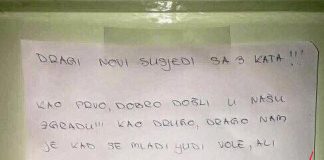 DRAGI NOVI SUSJEDI SA 3 KATA!!!
KAO PRVO, DOBRO DOŠLI U NAŠU
ZGRADU!!! KAO DRUGO, DRAGO NAM
JE KAD SE MLADI LJUDI VOLE, ALI